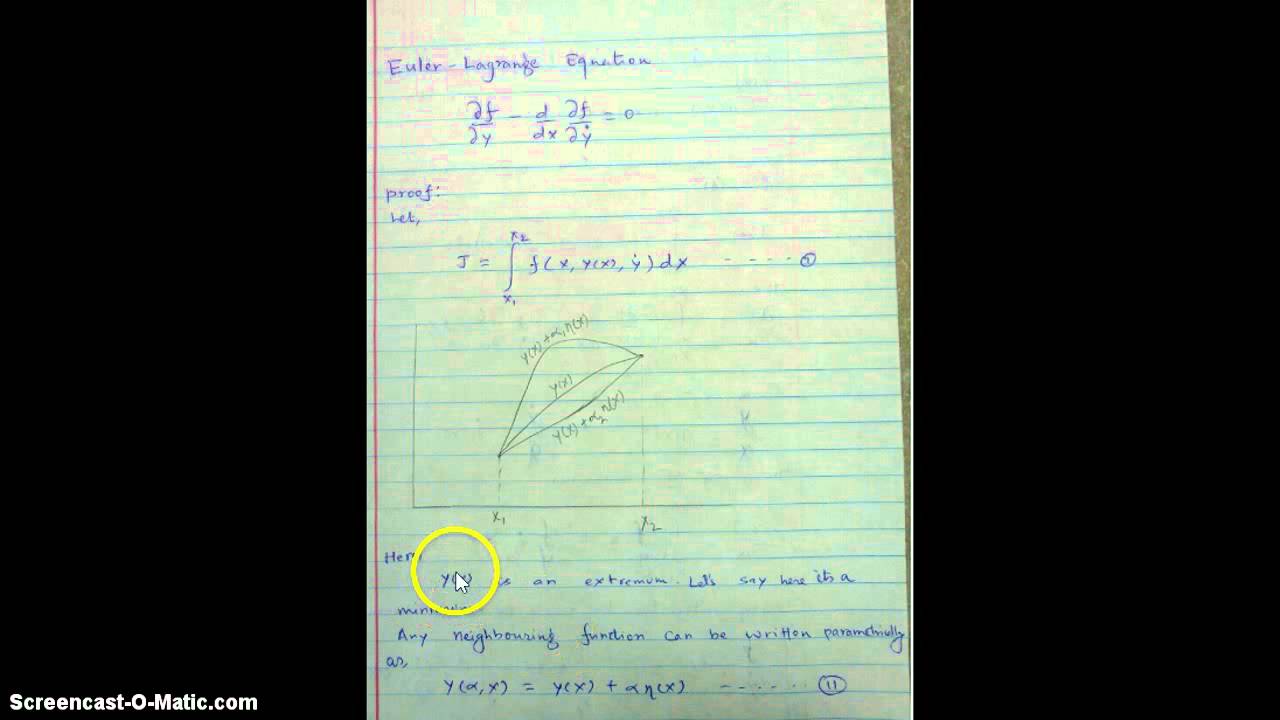 Euler-Lagrange Equation
∂f/∂y - d/dx ∂f/∂ẏ = 0
proof:
Let,
J = ∫_{x₁}^{x₂} f(x, y(x), ẏ) dx ------ (I)
y(x)+α₁η(x)
y(x)
y(x)+α₂η(x)
x₁ x₂
Here
y(x) is an extremum. Let's say here its a
Any neighbouring function can be written parametrically
as,
y(α,x) = y(x) + αη(x) ------- (II)
Screencast-O-Matic.com